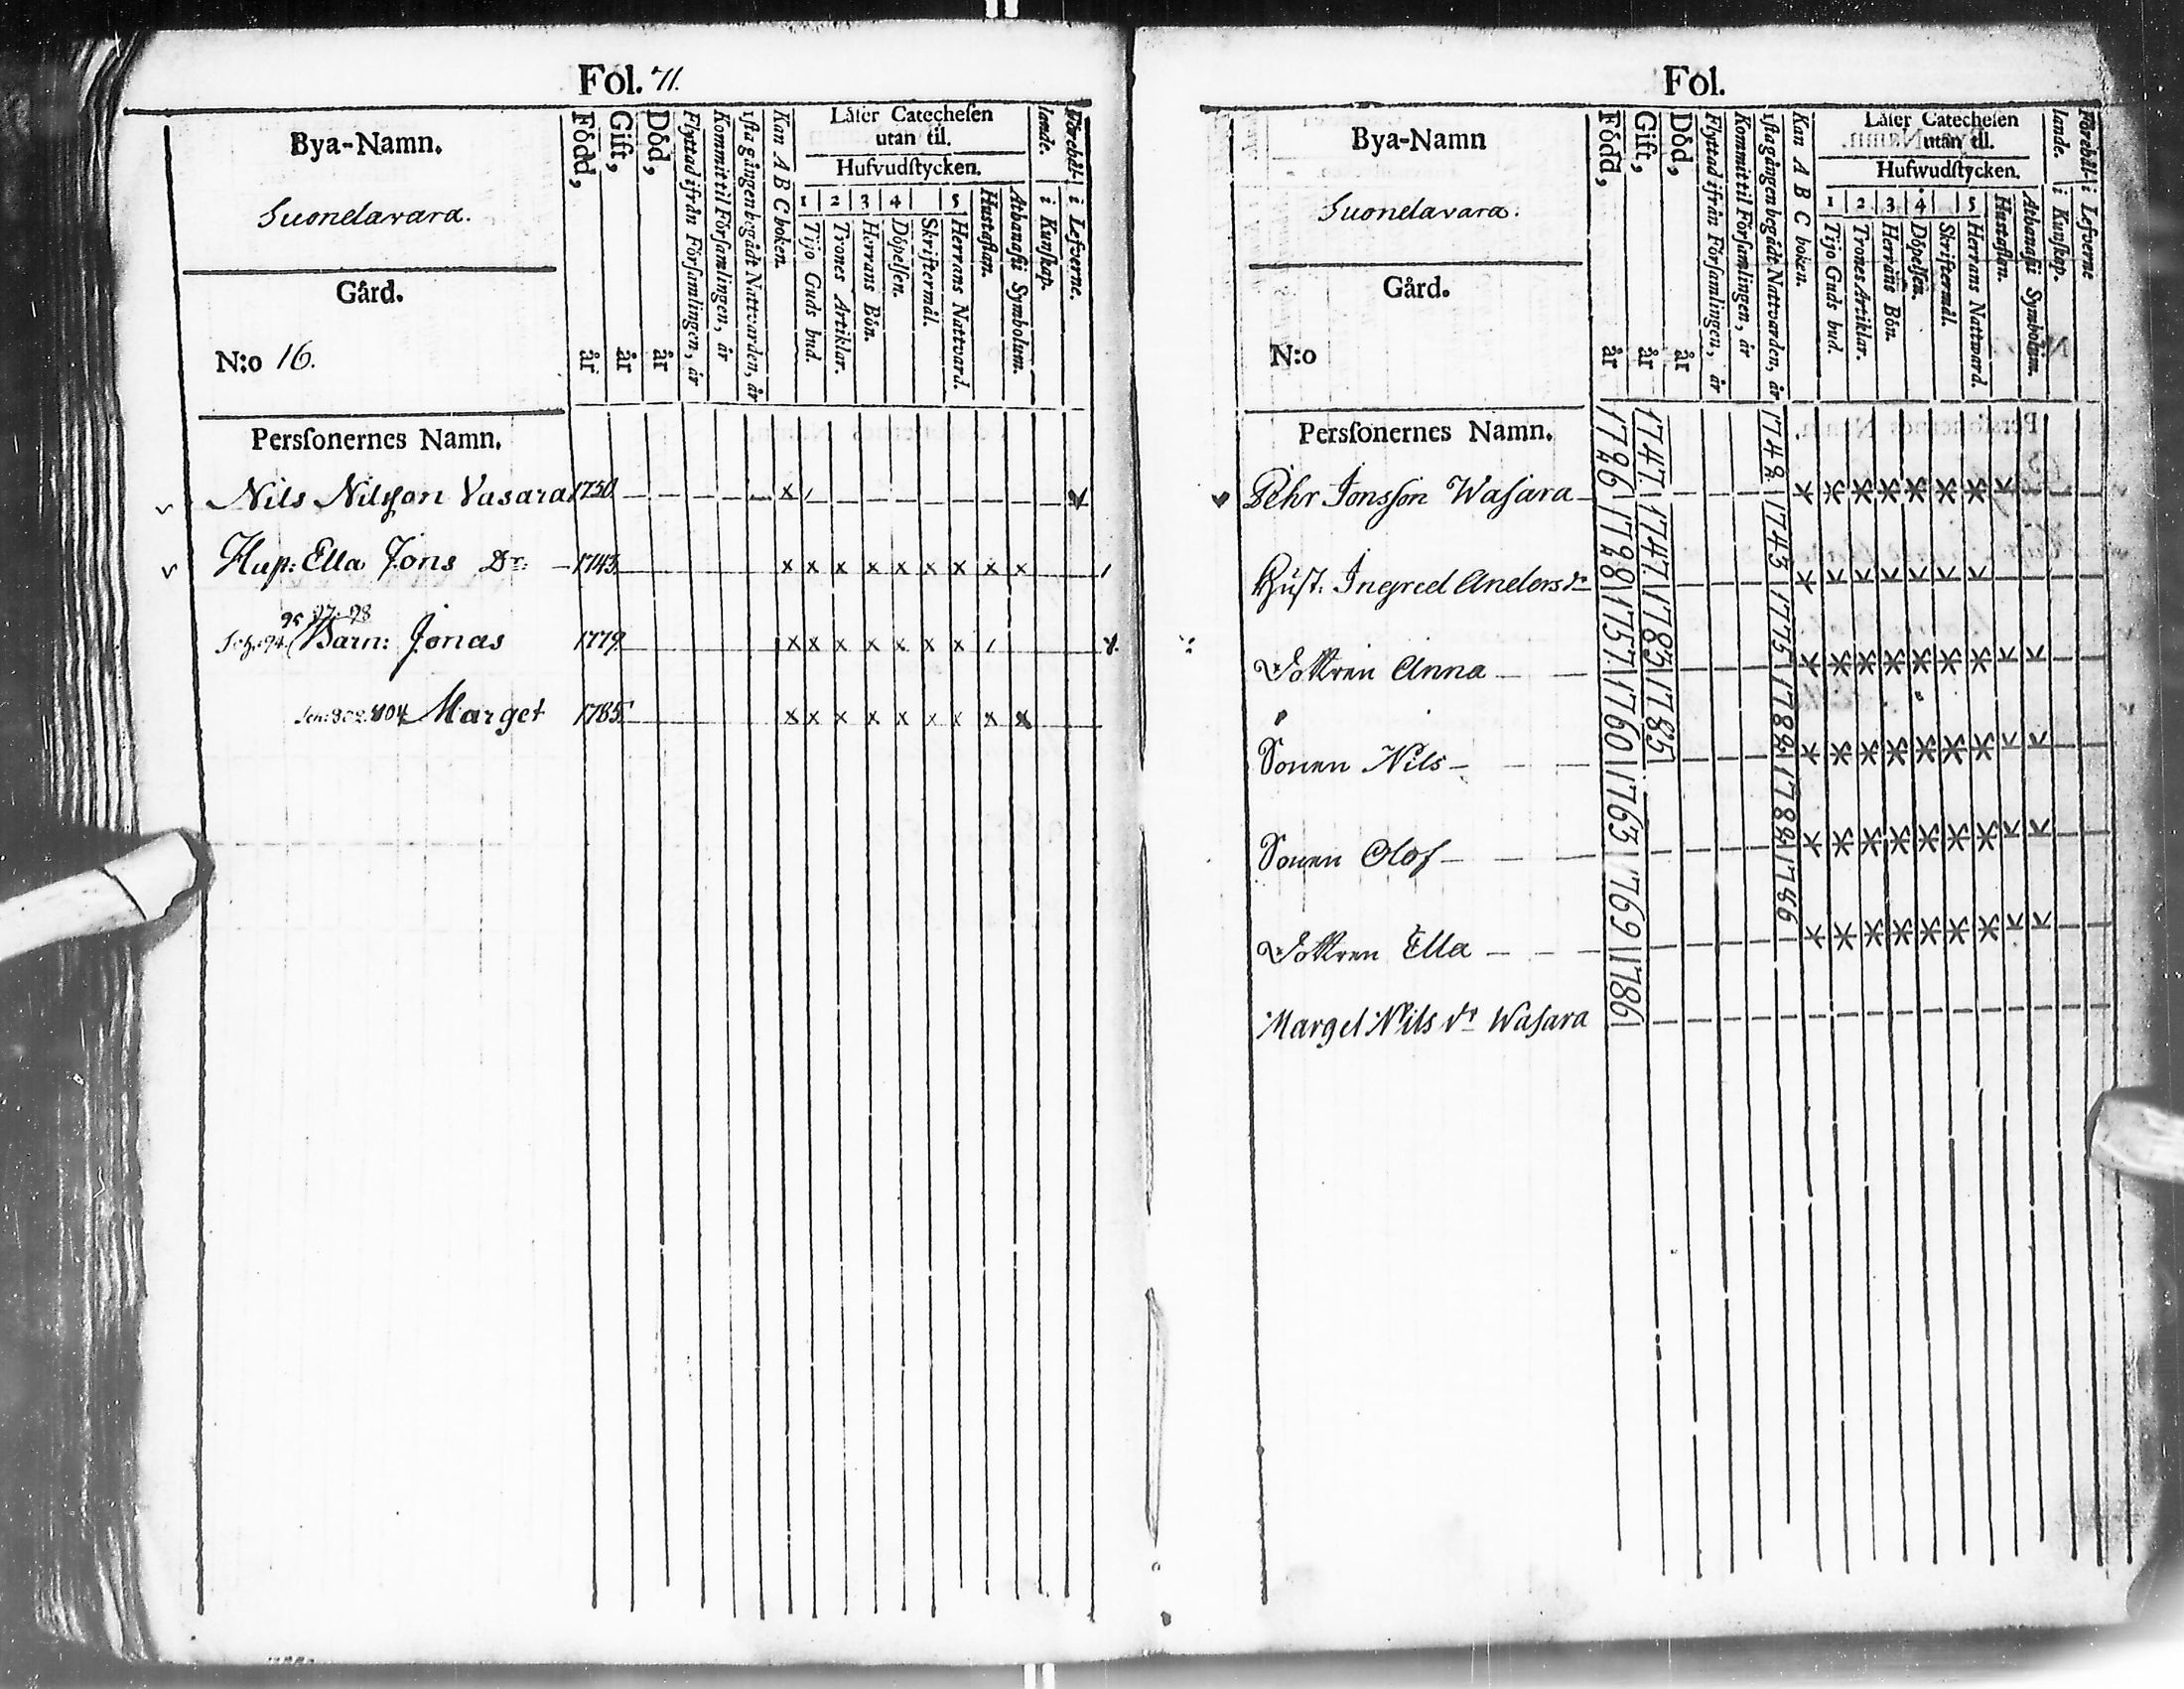 Fol. 71.
Bya-Namn.
Suonelavara.
Gård.
N:o 16.
Persſonernes Namn.
Född, år
Gift, år
Död, år
Flyttad ifrån Förſamlingen, år
Kommit til Förſamlingen, år
1ſta gången begådt Nattvarden, år
Kan A B C boken.
Låſer Catecheſen
utan til.
Hufvudſtycken.
1 2 3 4 5
Tijo Guds bud.
Trones Artiklar.
Herrans Bön.
Döpelſen.
Skriftermål.
Herrans Nattvard.
Hustaflan.
Athanaſii Symbolum.
Förehål-
lande.
i Kunſkap.
i Lefverne.
Nils Nilsſon Vasara 1750 x
Hus: Ella Jöns Dr 1743 x x x x x x x x x
95 97-98
94 Barn: Jonas 1779 x x x x x x x
804 Marget 1785 x x x x x x x x x
Fol.
Bya-Namn
Suonelavara.
Gård.
N:o
Persſonernes Namn.
Född, år
Gift, år
Död, år
Flyttad ifrån Förſamlingen, år
Kommit til Förſamlingen, år
1ſta gången begådt Nattvarden, år
Kan A B C boken.
Låſer Catecheſen
utan til.
Hufwudſtycken.
1 2 3 4 5
Tijo Guds bud.
Trones Artiklar.
Herrans Bön.
Döpelſen.
Skriftermål.
Herrans Nattward.
Hustaflan.
Athanaſii Symbolum.
Förehål-
lande.
i Kunſkap.
i Lefverne
Pehr Jonsſon Waſara 1726 1747 1742
Huſt. Ingred Anders dr 1728 1747 1743
Dottren Anna 1757 1785 1775
Sonen Nils 1760 1785 1782
Sonen Olof 1763 1782
Dottren Ella 1769 1786
Marget Nils dr Waſara 1786